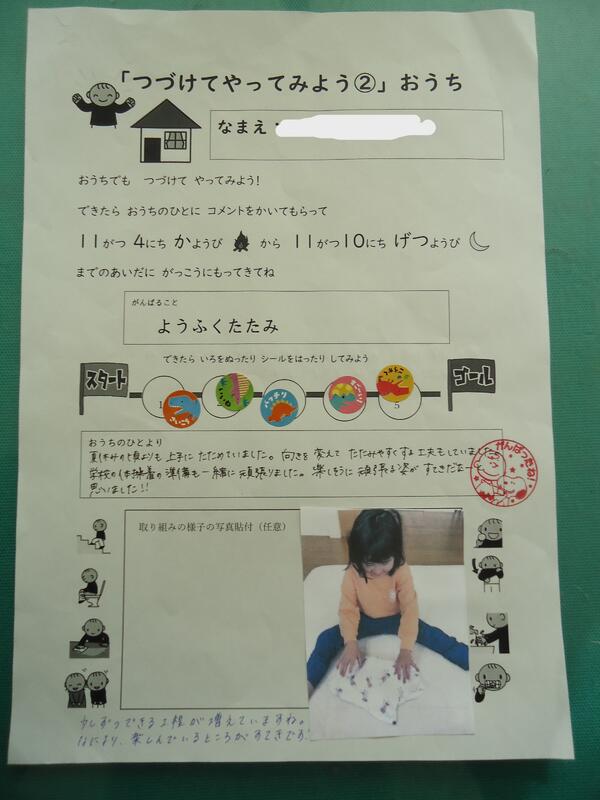 「つづけてやってみよう②」おうち
なまえ：
おうちでも つづけて やってみよう！
できたら おうちのひとに コメントをかいてもらって
11がつ 4にち かようび から 11がつ10にち げつようび
までのあいだに がっこうにもってきてね
がんばること
ようふくたたみ
できたら いろをぬったり シールをはったり してみよう
スタート
ゴール
1
5
おうちのひとより
夏休みの頃よりも上手にたためていました。向きを変えてたたみやすくする工夫もしていました。
学校の体操着の準備も一緒に頑張りました。楽しそうに頑張る姿がすてきだなーと
思いました!!
がんばったね!
取り組みの様子の写真貼付（任意）
少しずつできる工程が増えていますね。
なにより、楽しんでいるところがすてきです。